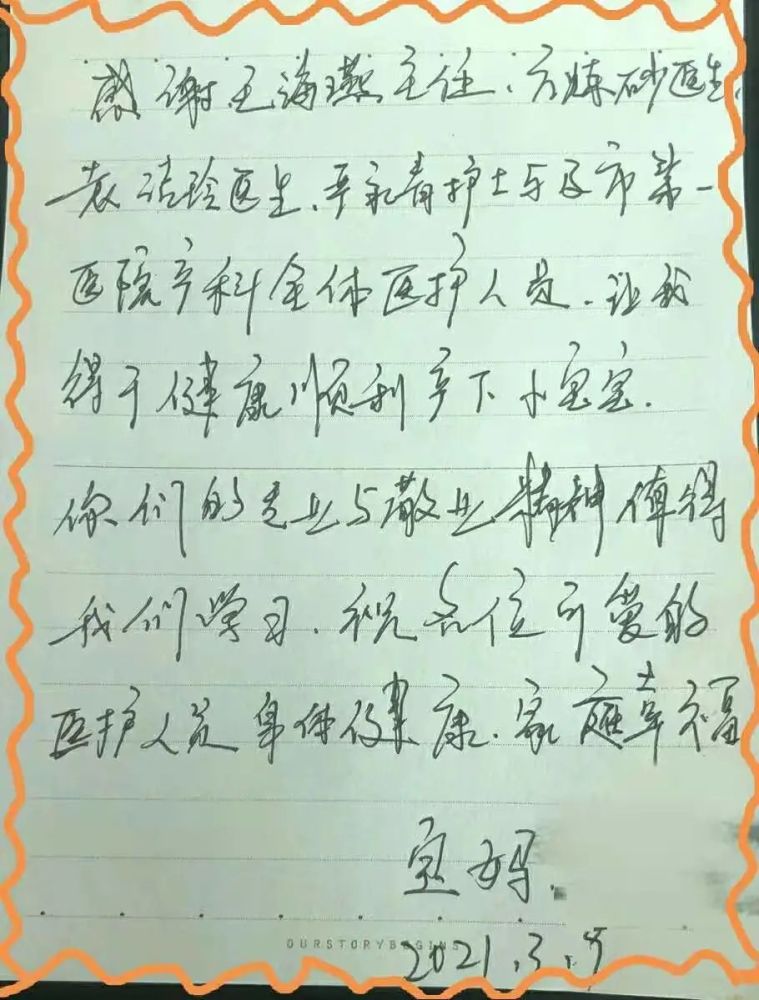 感谢王海燕主任、方炼砂医生、
袁洁玲医生、严永青护士与及市第一
医院产科全体医护人员、让我
得于健康顺利产下小宝宝.
你们的专业与敬业精神值得
我们学习、祝各位可爱的
医护人员身体健康、家庭幸福
宝妈.
OURSTORYBEGINS
2021.3.9